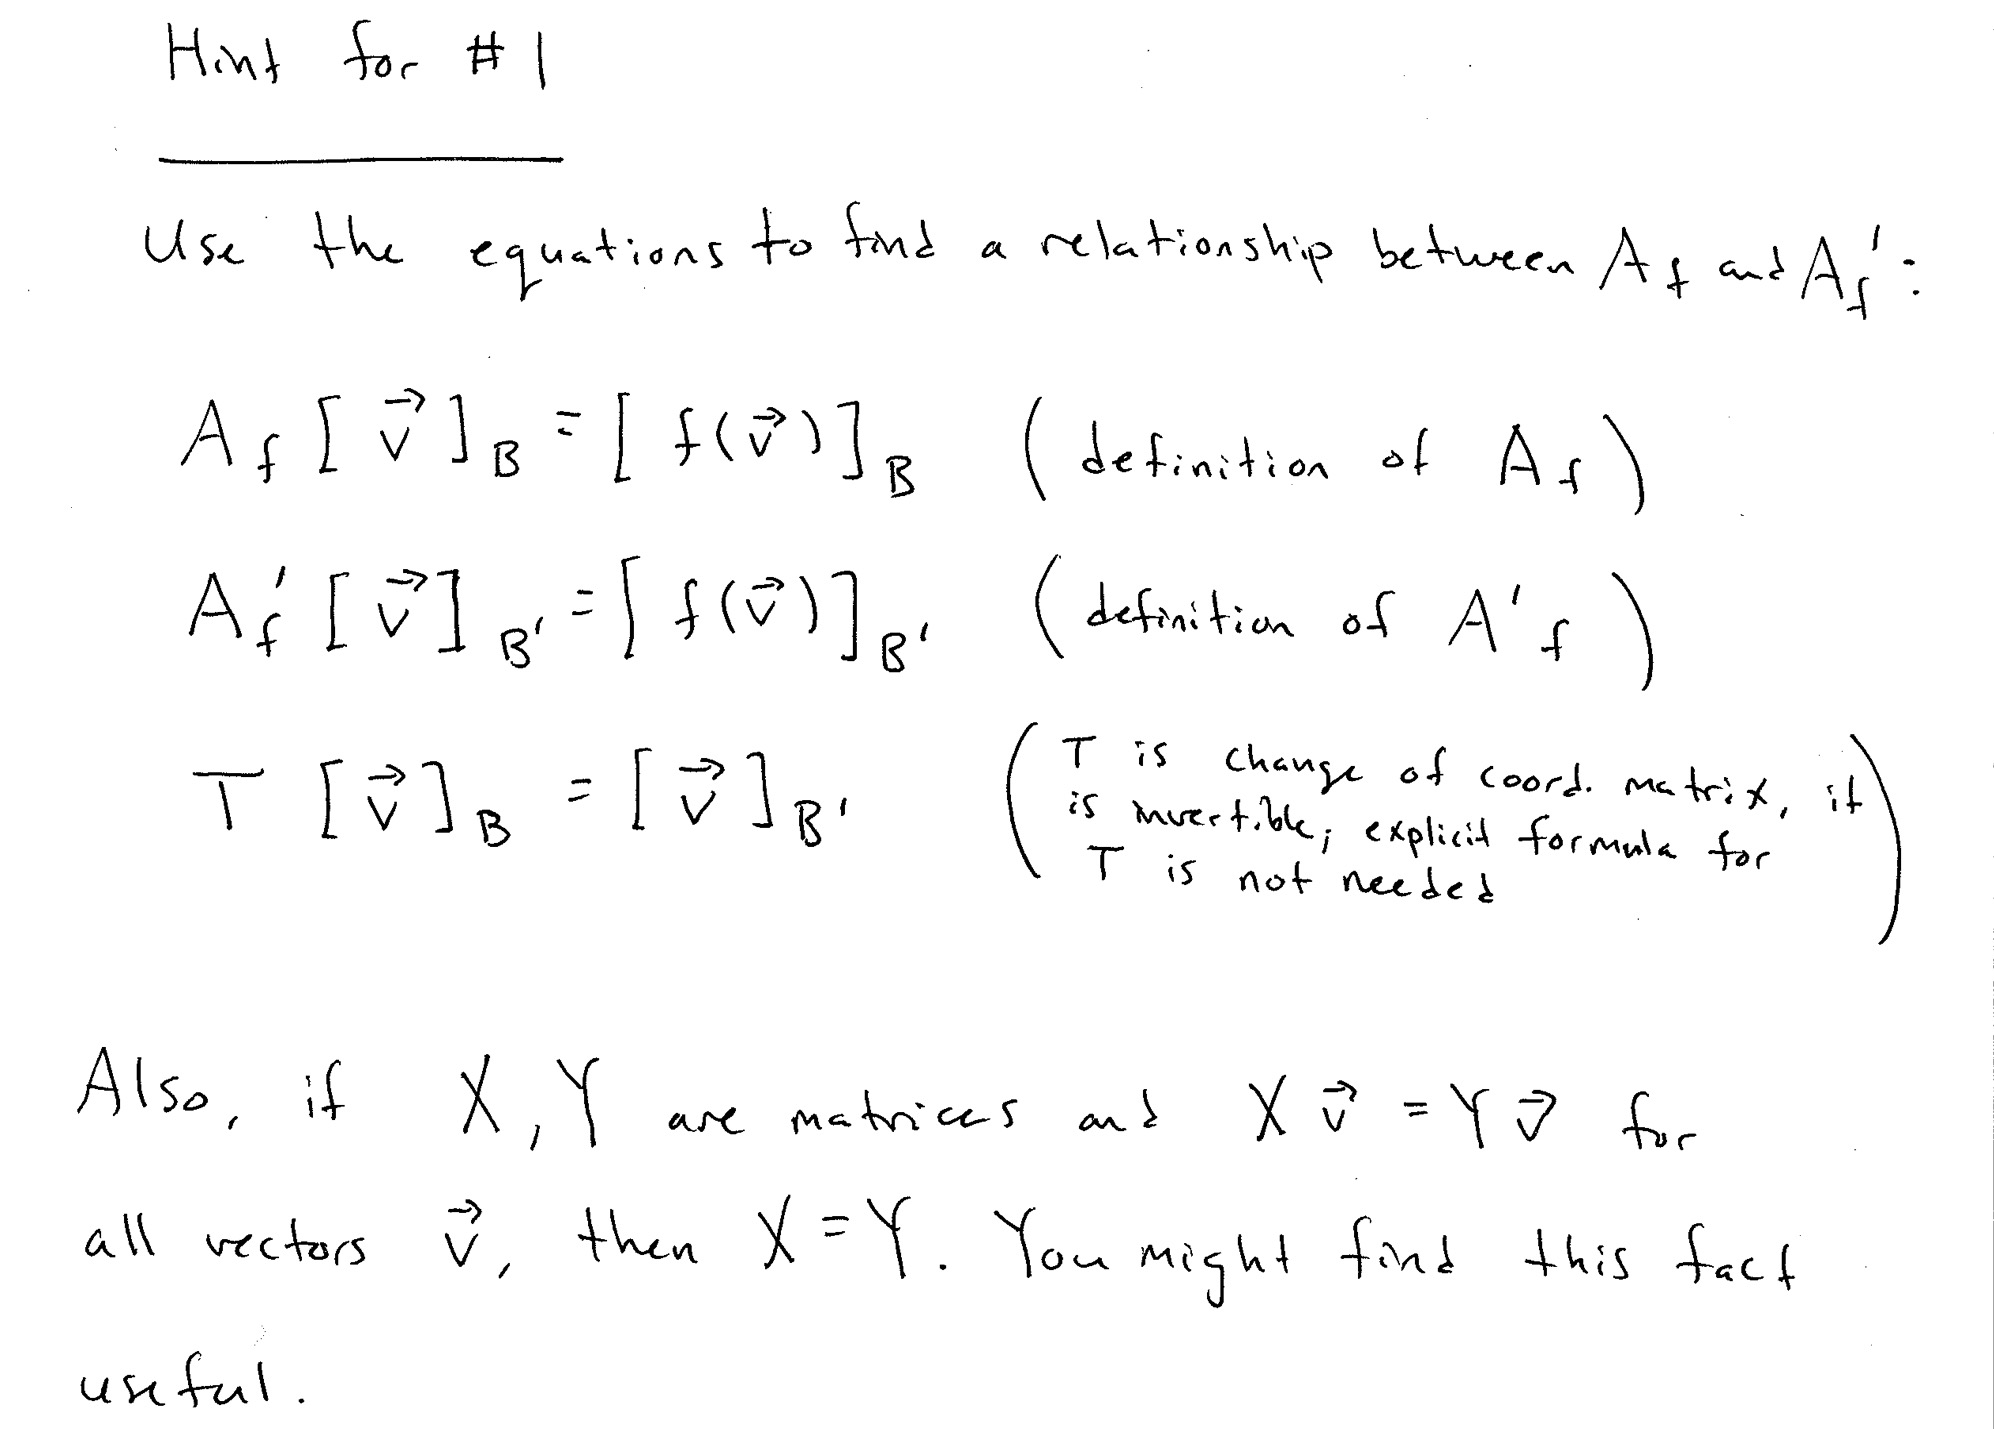 Hint for #1
Use the equations to find a relationship between A_f and A_f':
A_f [v⃗]_B = [f(v⃗)]_B (definition of A_f)
A_f' [v⃗]_B' = [f(v⃗)]_B' (definition of A'_f)
T [v⃗]_B = [v⃗]_B' (T is change of coord. matrix, it
is invertible; explicit formula for
T is not needed)
Also, if X, Y are matrices and X v⃗ = Y v⃗ for
all vectors v⃗, then X = Y. You might find this fact
useful.